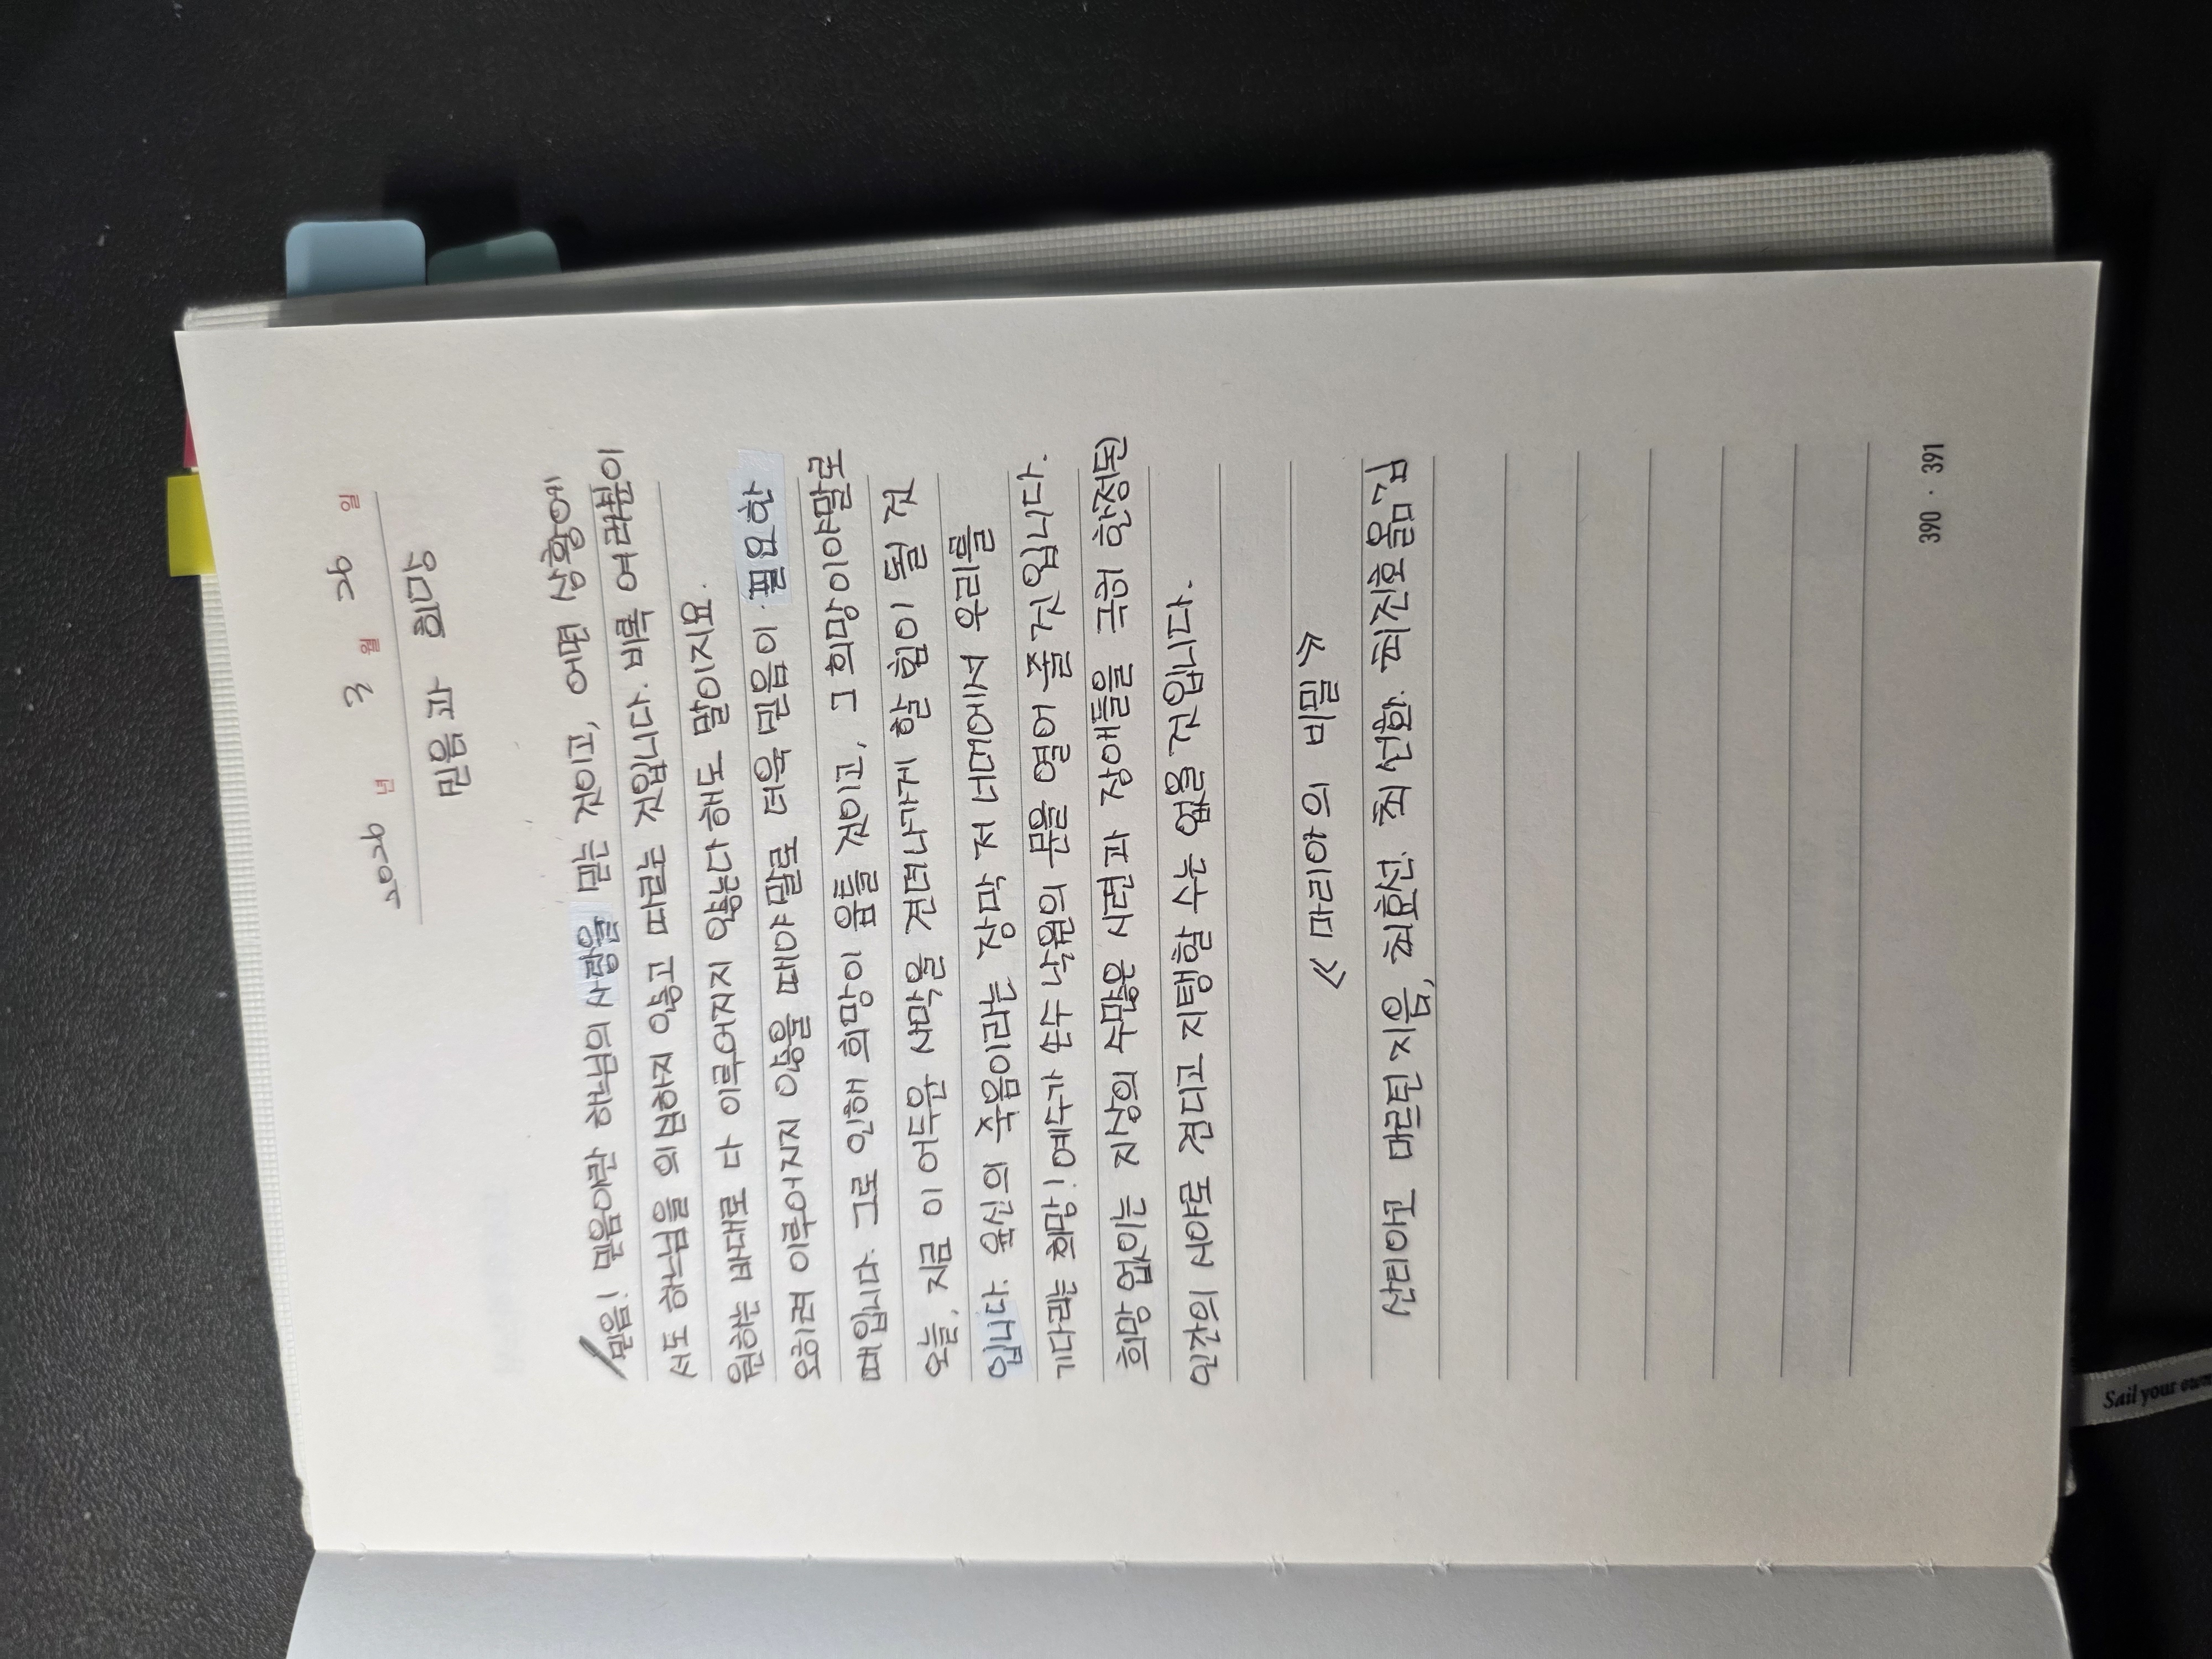 2026 년 3 월 26 일
믿음과 희망
믿음! 믿음이란 하느님의 사랑을 믿는 것이고, 어떤 상황에
서도 하느님을 의심하지 않고 따르는 것입니다. 비록 여러분이
원하는 바대로 다 이루어지지 않는다 해도 말이지요.
요하면 이루어지지 않을 때야 말로 더욱 믿음이 필요한
때입니다. 그로 인해 희망이 움틀 것이고, 그 희망이야말로
오늘, 지금 이 어두운 사막을 견뎌나가게 할 힘이 될 것
입니다. 육신의 죽음이라는 장막 저 너머에서 우리를
기다리는 희망! 예수가 손수 낙원의 문을 열어 줄 것입니다.
희망 없이는 지상의 수많은 시련과 장애들을 극히 한정된
인간의 시야로 견디고 지탱할 수는 없을 것입니다.
《 마리아의 비밀 》
산티아고 마르틴 지음, 최효선. 최선화. 최진호 옮김
390 · 391
Sail your own